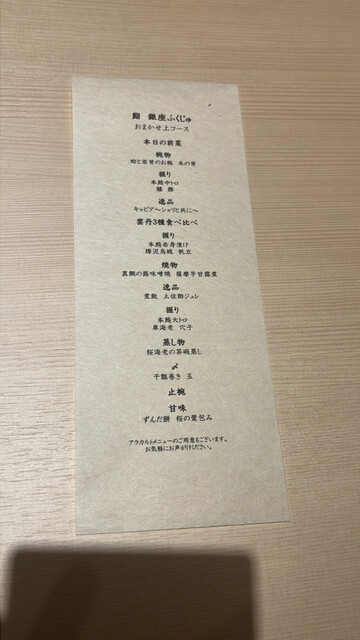 鮨 銀座ふくじゅ
おまかせ上コース
本日の前菜
椀物
蛤と若芽のお椀 木の芽
握り
本鮪中トロ
逸品
キャビア〜シャリと共に〜
雲丹3種食べ比べ
握り
本鮪赤身漬け
障泥烏賊 帆立
焼物
真鯛の蕗味噌焼 薩摩芋甘露煮
逸品
蛍烏賊 土佐酢ジュレ
握り
本鮪大トロ
車海老 穴子
蒸し物
桜海老の茶碗蒸し
〆
干瓢巻き 玉
止椀
甘味
ずんだ餅 桜の葉包み
アラカルトメニューのご用意もございます。
お気軽にお声がけください。